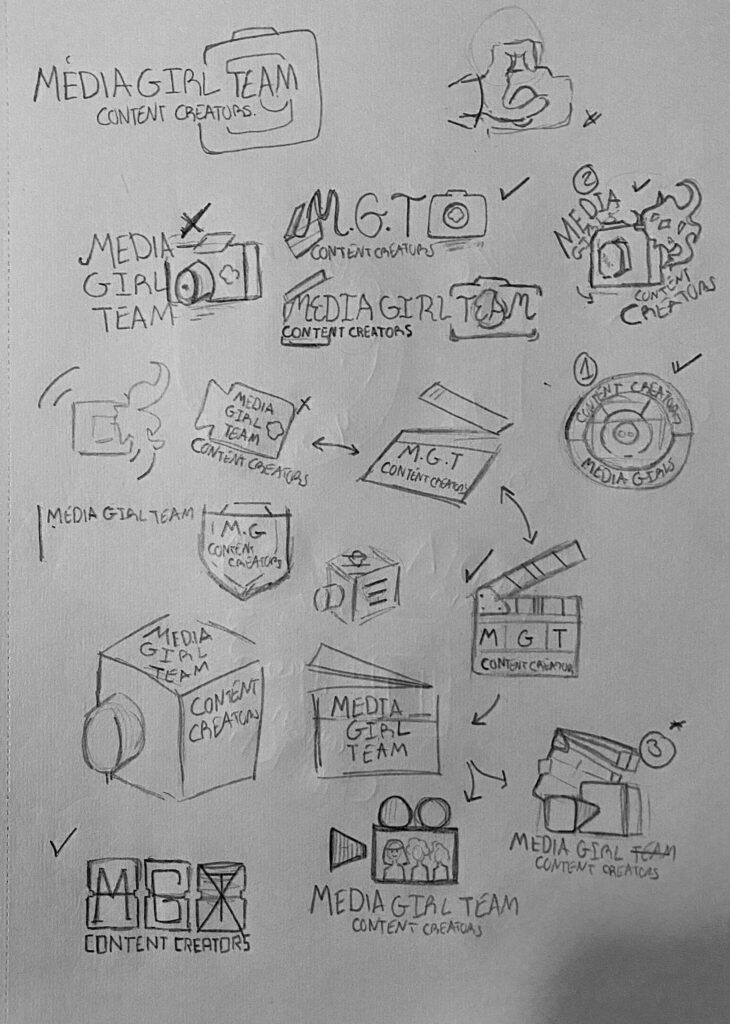 MÉDIA GIRL TEAM
CONTENT CREATORS.
MEDIA
GIRL
TEAM
M.G.T
CONTENT CREATORS
MEDIA GIRL TEAM
CONTENT CREATORS
2
MEDIA
GIRLS
CONTENT
CREATORS
MEDIA
GIRL
TEAM
CONTENT CREATORS
M.G.T
CONTENT CREATORS
1
CONTENT CREATORS
MEDIA GIRLS
MEDIA GIRL TEAM
M.G
CONTENT
CREATORS
M G T
CONTENT CREATOR
MEDIA
GIRL
TEAM
CONTENT
CREATORS
MEDIA
GIRL
TEAM
3
MEDIA GIRL TEAM
CONTENT CREATORS
MEDIA GIRL TEAM
CONTENT CREATORS
MGT
CONTENT CREATORS